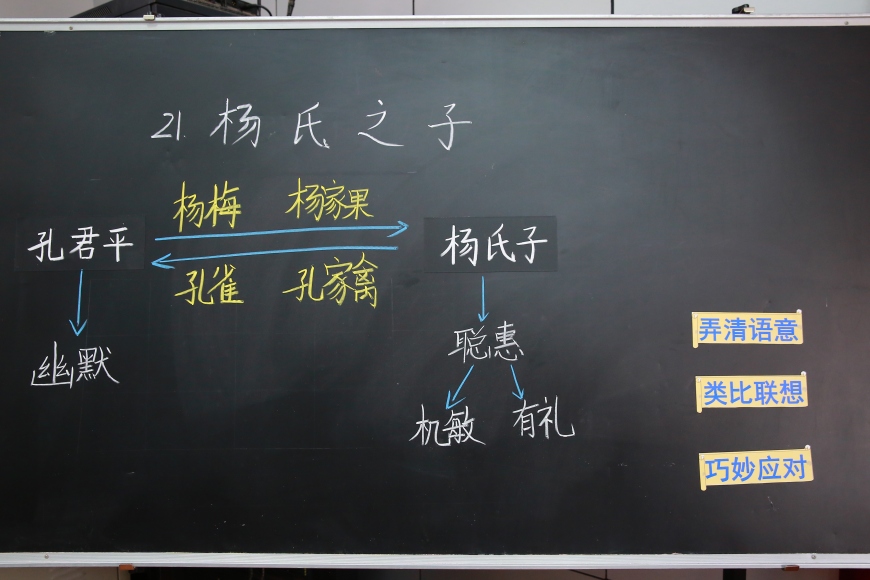 21. 杨氏之子
杨梅 杨家果
孔君平 杨氏子
孔雀 孔家禽
幽默 聪惠
机敏 有礼
弄清语意
类比联想
巧妙应对